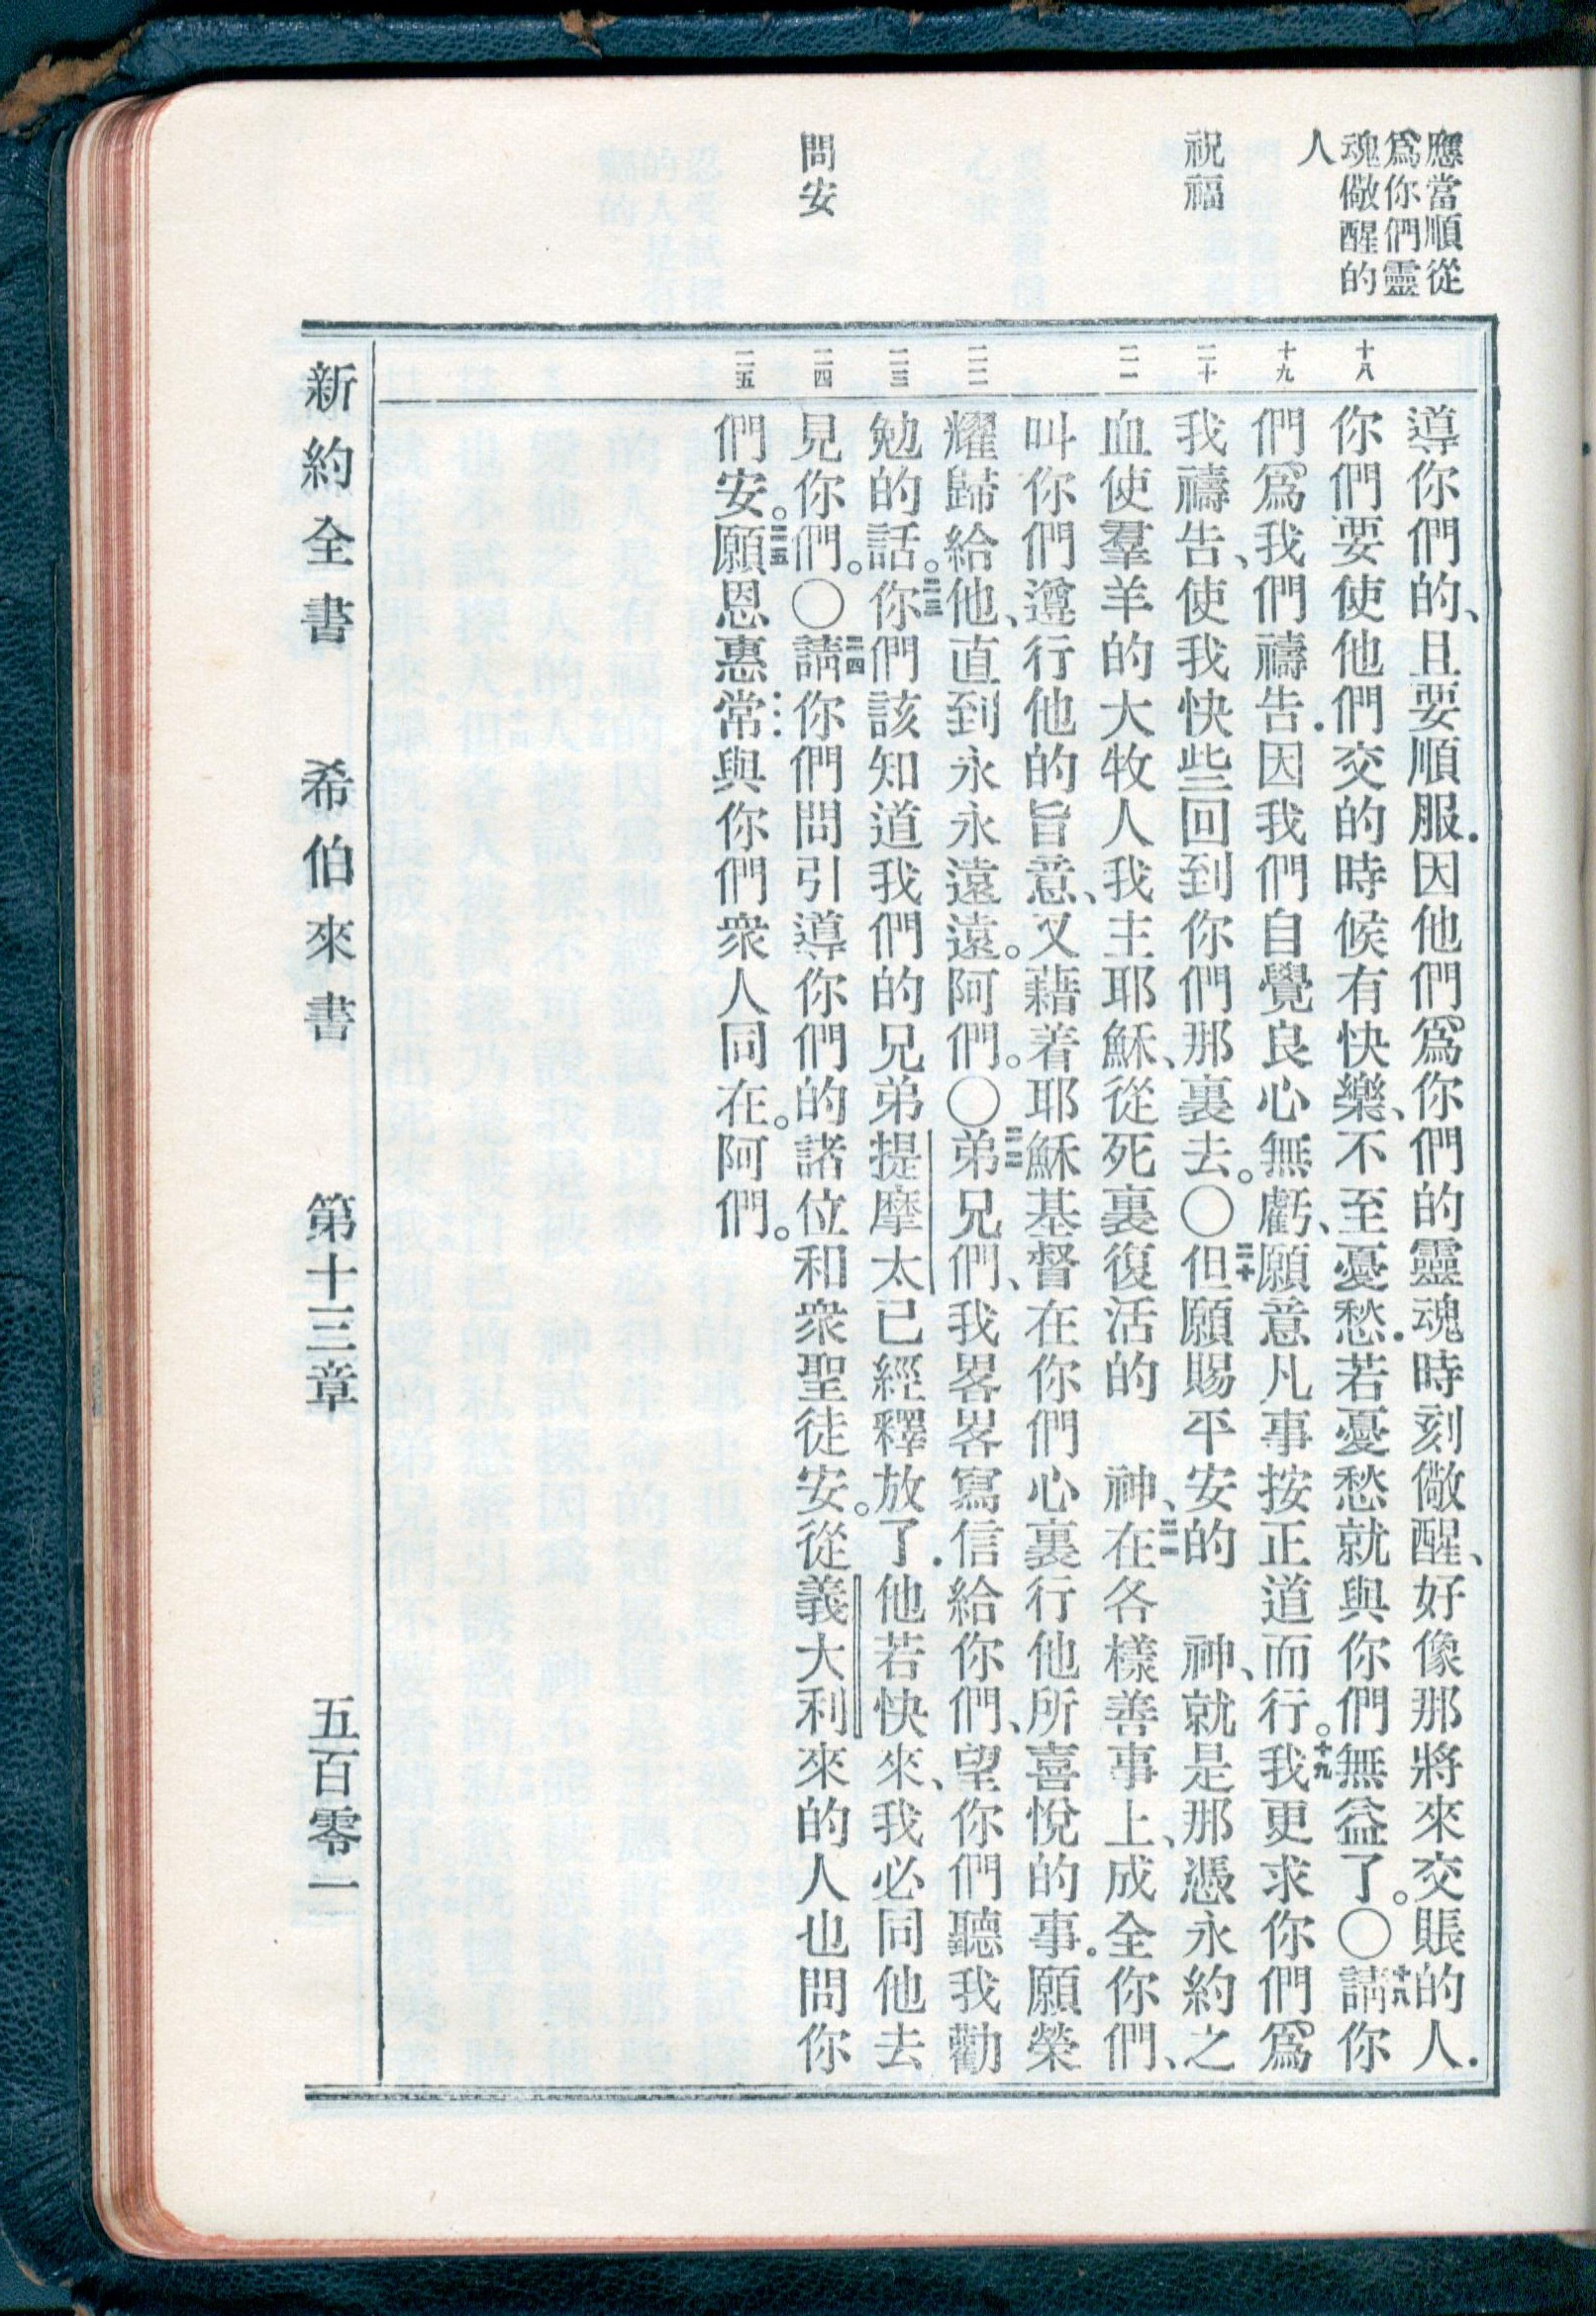 應當順從
爲你們靈
魂儆醒的
人
祝福
問安
十八
十九
二十
二一
二二
二三
二四
二五
導你們的、且要順服．因他們爲你們的靈魂時刻儆醒、好像那將來交賬的人．
你們要使他們交的時候有快樂、不至憂愁．若憂愁就與你們無益了。〇十八請你
們爲我們禱告．因我們自覺良心無虧、願意凡事按正道而行。十九我更求你們爲
我禱告、使我快些回到你們那裏去。〇二十但願賜平安的　神、就是那憑永約之
血使羣羊的大牧人我主耶穌、從死裏復活的　神、二一在各樣善事上、成全你們、
叫你們遵行他的旨意、又藉着耶穌基督在你們心裏行他所喜悅的事．願榮
耀歸給他、直到永永遠遠。阿們。〇二二弟兄們、我畧畧寫信給你們、望你們聽我勸
勉的話。二三你們該知道我們的兄弟提摩太已經釋放了．他若快來、我必同他去
見你們。〇二四請你們問引導你們的諸位和衆聖徒安。從義大利來的人也問你
們安。二五願恩惠常與你們衆人同在。阿們。
新約全書　希伯來書　第十三章　五百零一